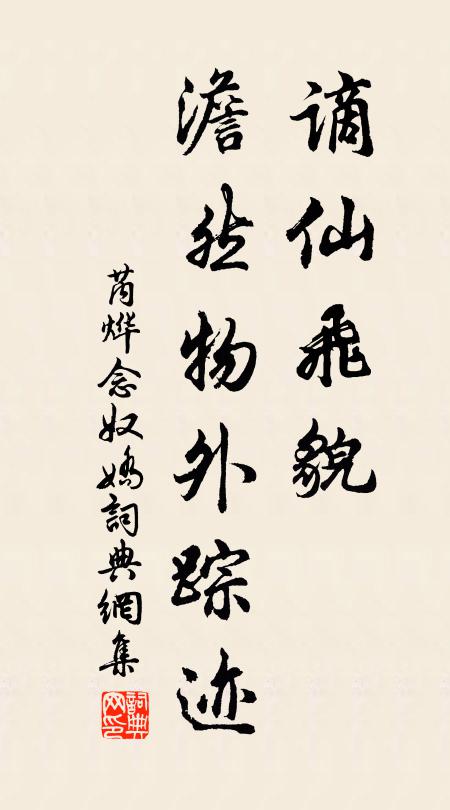 谪仙飛貌
澹然物外踪迹
芮烨念奴嬌詞典網集
詞典网印